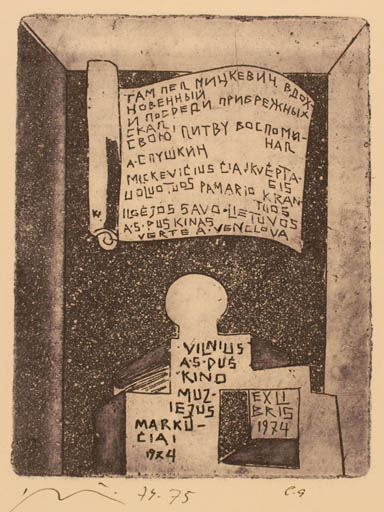 ТАМ ПЕЛ МИЦКЕВИЧ ВДОХ-
НОВЕННЫЙ
И ПОСРЕДИ ПРИБРЕЖНЫХ
СКАЛ
СВОЮ ЛИТВУ ВОСПОМИ-
НАЛ
А·С ПУШКИН
MICKEVIČIUS ČIA, ĮKVĖPTA-
GIS
UOLUOTUOS PAMARIO KRAN-
TUOS
ILGĖJOS SAVO LIETUVOS
A·S·PUŠKINAS
VERTĖ A. VENCLOVA
VILNIUS
A·S·PUŠ
KINO
MUZ-
IEJUS
MARKU-
ČIAI
1974
EXLI
BRIS
1974
74-75